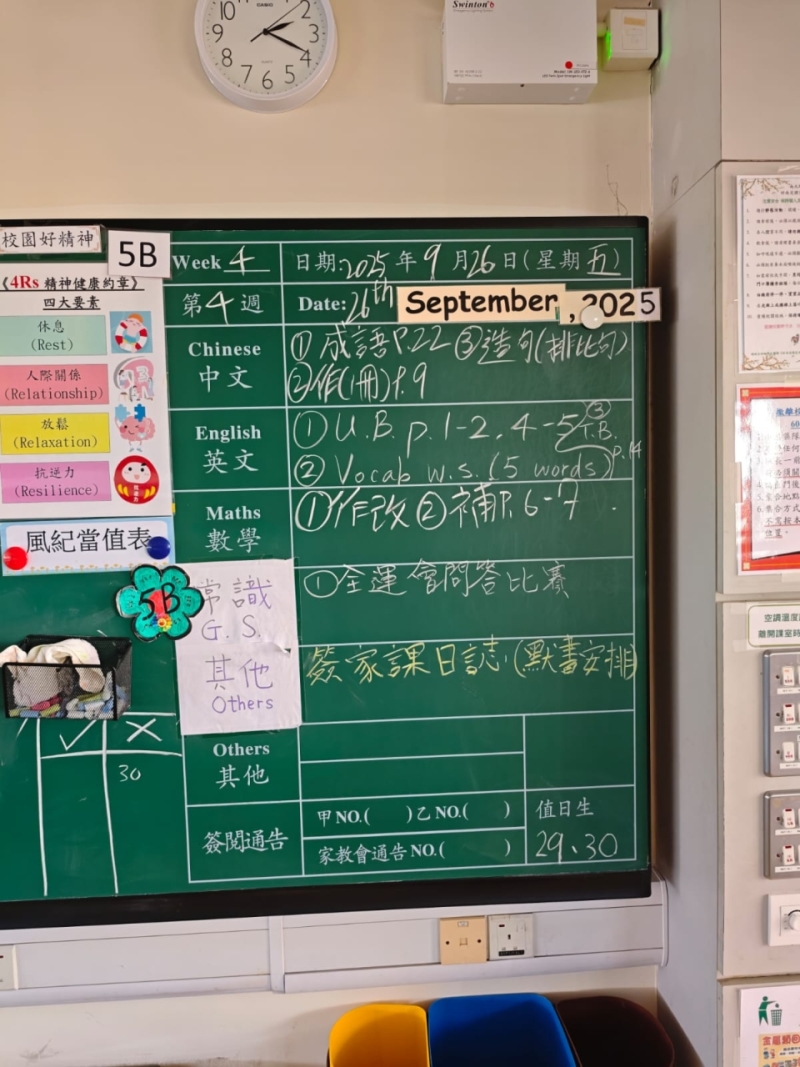 CASIO
Swinton
校園好精神
5B
《4Rs 精神健康約章》
四大要素
休息
(Rest)
人際關係
(Relationship)
放鬆
(Relaxation)
抗逆力
(Resilience)
風紀當值表
5B
30
Week 4
日期:2025年9月26日(星期五)
第4週
Date: 26th September, 2025
Chinese
中文
①成語P.22 ③造句(排比句)
②作(冊)P.9
English
英文
① U.B. p.1-2, 4-5 ③ T.B. p.14
② Vocab w.s. (5 words)
Maths
數學
①作改 ②補P.6-7
常識
G.S.
①全運會問答比賽
其他
Others
簽家課日誌(默書安排)
Others
其他
簽閱通告
甲NO.( )乙NO.( )
家教會通告NO.( )
值日生
29、30
空調溫度
離開課室時